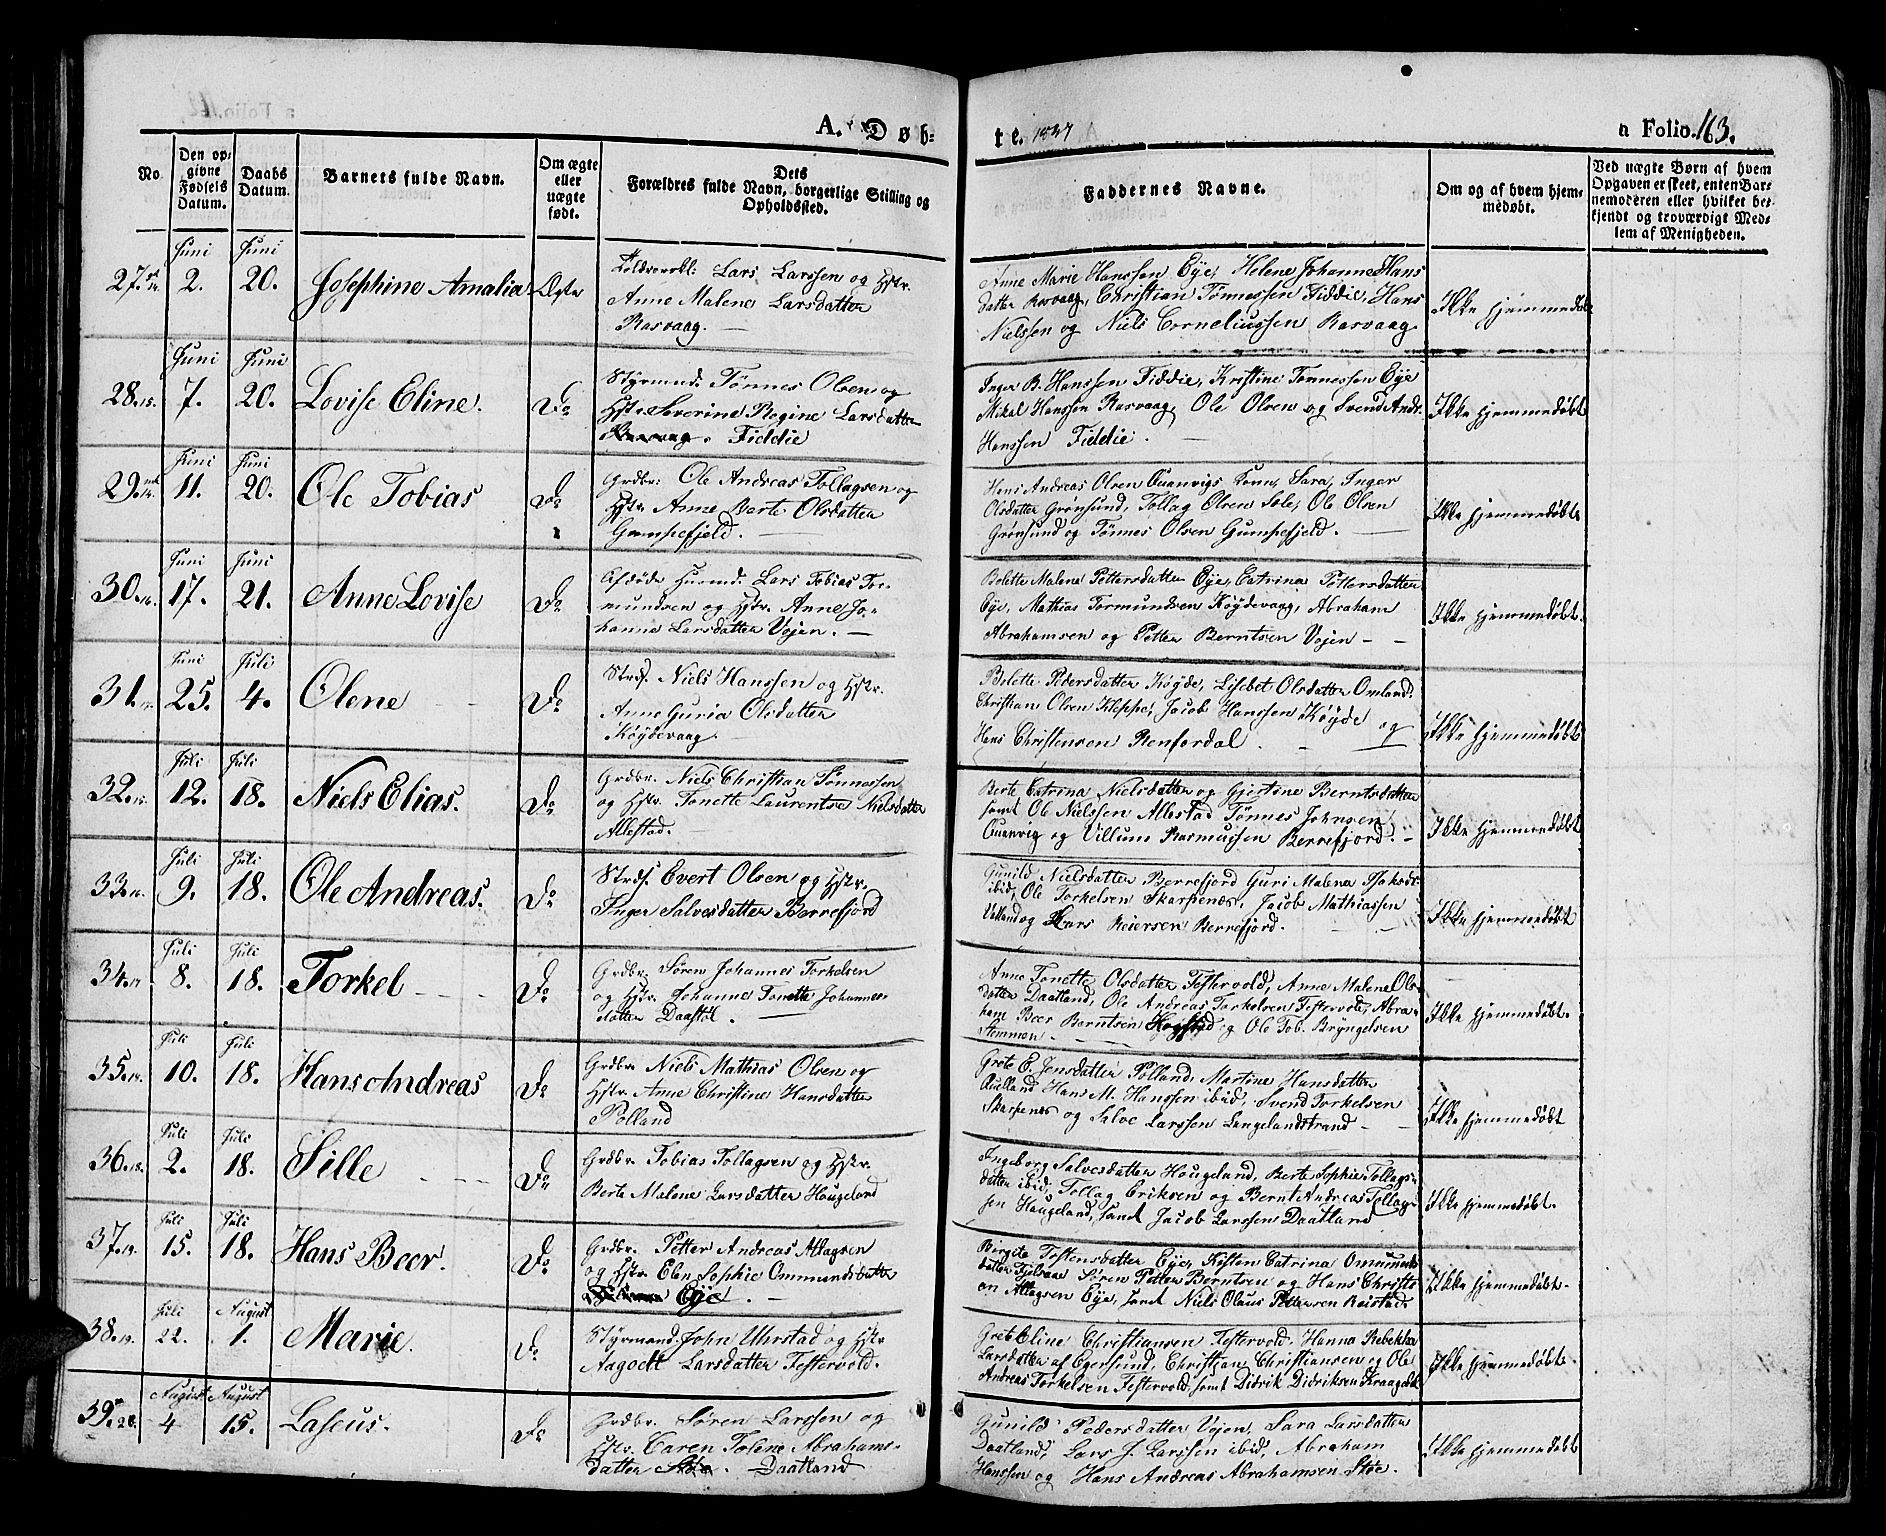 A. Døb-
te. 1837
a Folio. 163.
No.
Den op-
givne
Fødsels
Datum.
Daabs
Datum.
Barnets fulde Navn.
Om ægte
eller
uægte
født.
Dets
Forældres fulde Navn, borgerlige Stilling og
Opholdssted.
Faddernes Navne.
Om og af hvem hjem-
medøbt.
Ved uægte Børn af hvem
Opgaven er skeet, enten Bar-
nemoderen eller hvilket be-
kjendt og troværdigt Med-
lem af Menigheden.
27. Juni 2. Juni 20. Josephine Amalia Ægte
Lars Larssen og Hstr.
Anne Malene Larsdatter
Rasvaag.
Anne Marie Hanssen Eye, Helene Johanne Hans
datter Rasvaag, Christian Tønnessen Fiddie, Hans
Nielssen og Niels Corneliussen Rasvaag
Ikke hjemmedøbt
28. Juni 7. Juni 20. Lovise Eline. Do
Styrmd. Tønnes Olsen og
Hstr. Severine Regine Larsdatter
Fiddie
Inger B. Hanssen Fiddie, Kristine Tønnessen Eye
Mikal Hanssen Rasvaag, Ole Olsen og Svend Andr.
Hanssen Fiddie.
Ikke hjemmedøbt
29. Juni 11. Juni 20. Ole Tobias Do
Grdbr. Ole Andreas Tollagsen og
Hstr. Anne Berte Olsdatter
Gumpefjeld.
Hans Andreas Olsen Quanvigs Kone, Sara, Inger
Olsdatter Grønsund, Tollag Olsen Sole, Ole Olsen
Grønsund og Tønnes Olsen Gumpefjeld.
Ikke hjemmedøbt
30. Juni 17. Juni 21. Anne Lovise Do
Afdøde Huusmd. Lars Tobias Tor-
mundsen og Hstr. Anne Jo-
hanne Larsdatter Vojen.
Bolette Malene Pettersdatter Eye, Catrina Pettersdatter
Eye, Mathias Tormundsen Køydevaag, Abraham
Abrahamsen og Petter Berntsen Vojen
Ikke hjemmedøbt.
31. Juni 25. Juli 4. Olene Do
Strds. Niels Hanssen og Hstr.
Anne Guria Olsdatter
Køydevaag.
Bolette Pedersdatter Køyde, Lisebet Olsdatter Omland.
Christian Olsen Kleppe, Jacob Hanssen Køyde og
Hans Christensen Rensordal.
Ikke hjemmedøbt
32. Juli 12. Juli 18. Niels Elias. Do
Grdbr. Niels Christian Tønnessen
og Hstr. Tonette Laurentse Nielsdatter
Allestad.
Berte Catrina Nielsdatter og Gjertine Berntsdatter
samt Ole Nielssen Allestad Tønnes Johnsen
Quanvig og Villum Rasmussen Berrefjord.
Ikke hjemmedøbt
33. Juli 9. Juli 18. Ole Andreas. Do
Strds. Evert Olsen og Hstr.
Inger Salvesdatter Berrefjord
Gunild Nielsdatter Berrefjord Guri Malena
ibid, Ole Torkelsen Skarpenes, Jacob Mathiassen
Vatland og Lars Reiersen Berrefjord.
Ikke hjemmedøbt
34. Juli 8. Juli 18. Torkel Do
Grdbr. Søren Johannes Torkelsen
og Hstr. Johanne Tonette Johannes-
datter Daastøl.
Anne Tonette Olsdatter Festervold, Anne Malene Ols-
datter Daatland, Ole Andreas Torkelsen Festervold, Abra-
ham Beer Berntsen Hogstad og Ole Tob. Bryngelsen
Stemmen
Ikke hjemmedøbt.
35. Juli 10. Juli 18. Hans Andreas Do
Grdbr. Niels Mathias Olsen og
Hstr. Anne Christine Hansdatter
Polland
Grete E. Jensdatter Polland, Martine Hansdatter
Hans M. Hanssen ibid, Svend Torkelsen
Skarpenes og Salve Larssen Langelandstrand
Ikke hjemmedøbt
36. Juli 2. Juli 18. Sille Do
Grdbr. Tobias Tollagsen og Hstr.
Berte Malene Larsdatter Hougeland
Ingeborg Salvesdatter Hougeland, Berte Sophie Tollags-
datter ibid, Tollag Eriksen og Bernt Andreas Tollag-
sen Hougeland, samt Jacob Larssen Daatland
Ikke hjemmedøbt.
37. Juli 15. Juli 18. Hans Beer. Do
Grdbr. Petter Andreas Atlagsen
og Hstr. Elen Sophie Ommundsdatter
Eye.
Birgete Tostensdatter Eye, Kisten Catrina Omunds
datter Søren Petter Berntsen og Hans Christi
an Atlagsen Eye, samt Niels Olaus Pettersen Reistad.
Ikke hjemmedøbt.
38. Juli 22. August 1. Marie. Do
Styrmand. John Uhrstad og Hstr
Aagodt Larsdatter Festervold.
Grete Eline Christiansen Festervold, Hanna Rebekka
Larsdatter af Egersund, Christian Christiansen og Ole
Andreas Torkelsen Festervold, samt Didrik Didriksen Kraagedal
Ikke hjemmedøbt.
39. August 4 August 15. Laseus. Do
Grdbr. Søren Larssen og
Hstr. Caren Tolene Abrahams-
datter Daatland
Gunild Pedersdatter Vojen, Sara Larsdatter
Daatland, Lars J. Larssen ibid, Abraham
Hanssen og Hans Andreas Abrahamsen Støe.
Ikke hjemmedøbt